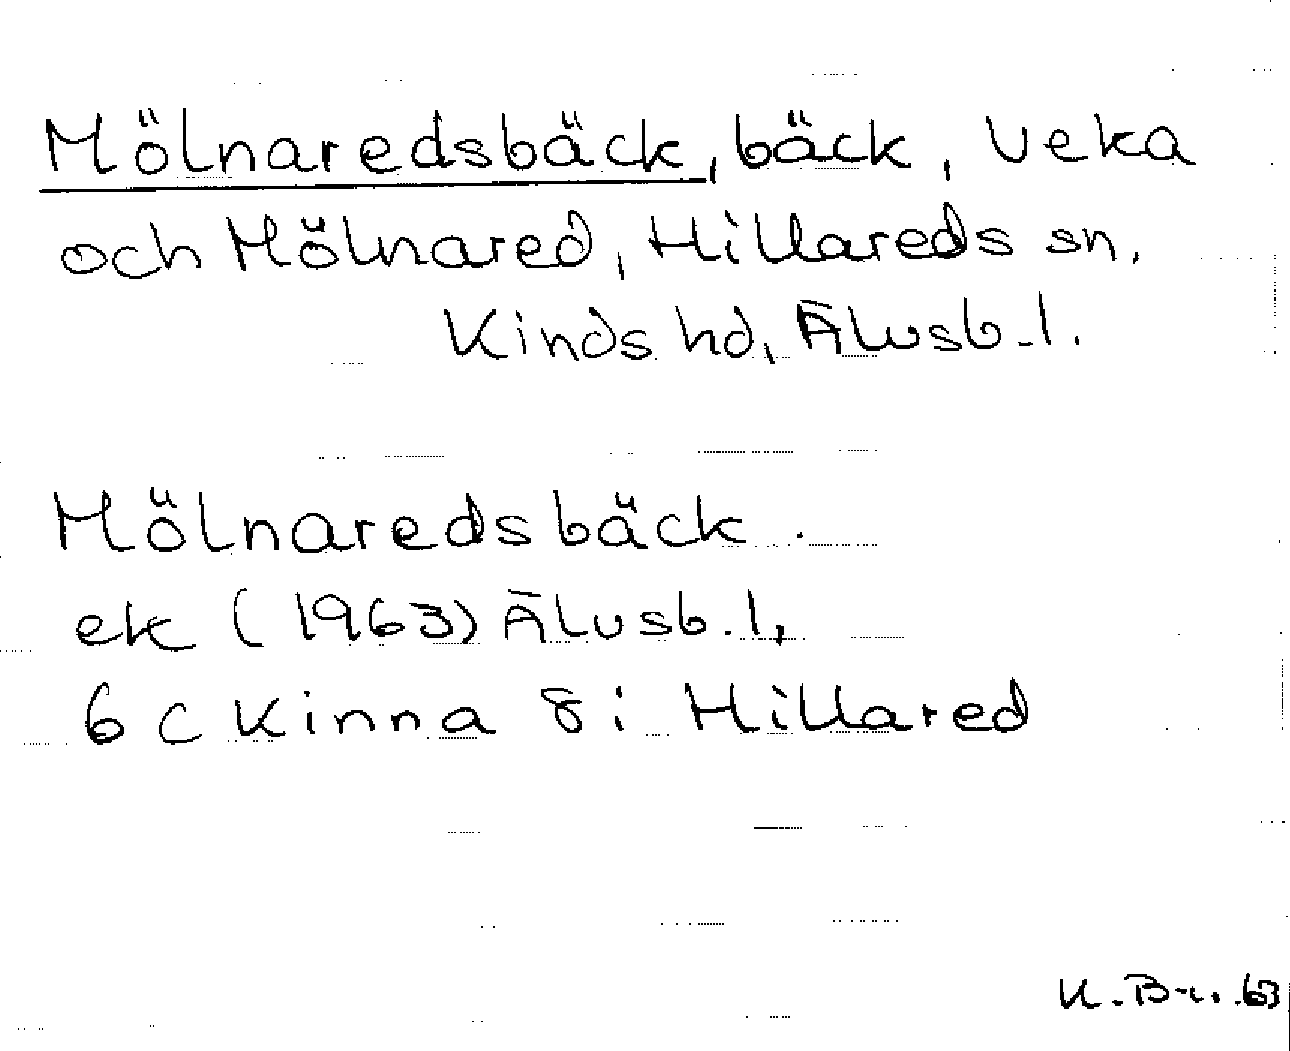 Mölnaredsbäck, bäck, Veka
och Mölnared, Hillareds sn,
Kinds hd, Älvsb. l.
Mölnaredsbäck
ek (1963) Älvsb. l,
6 c Kinna 8 i Hillared